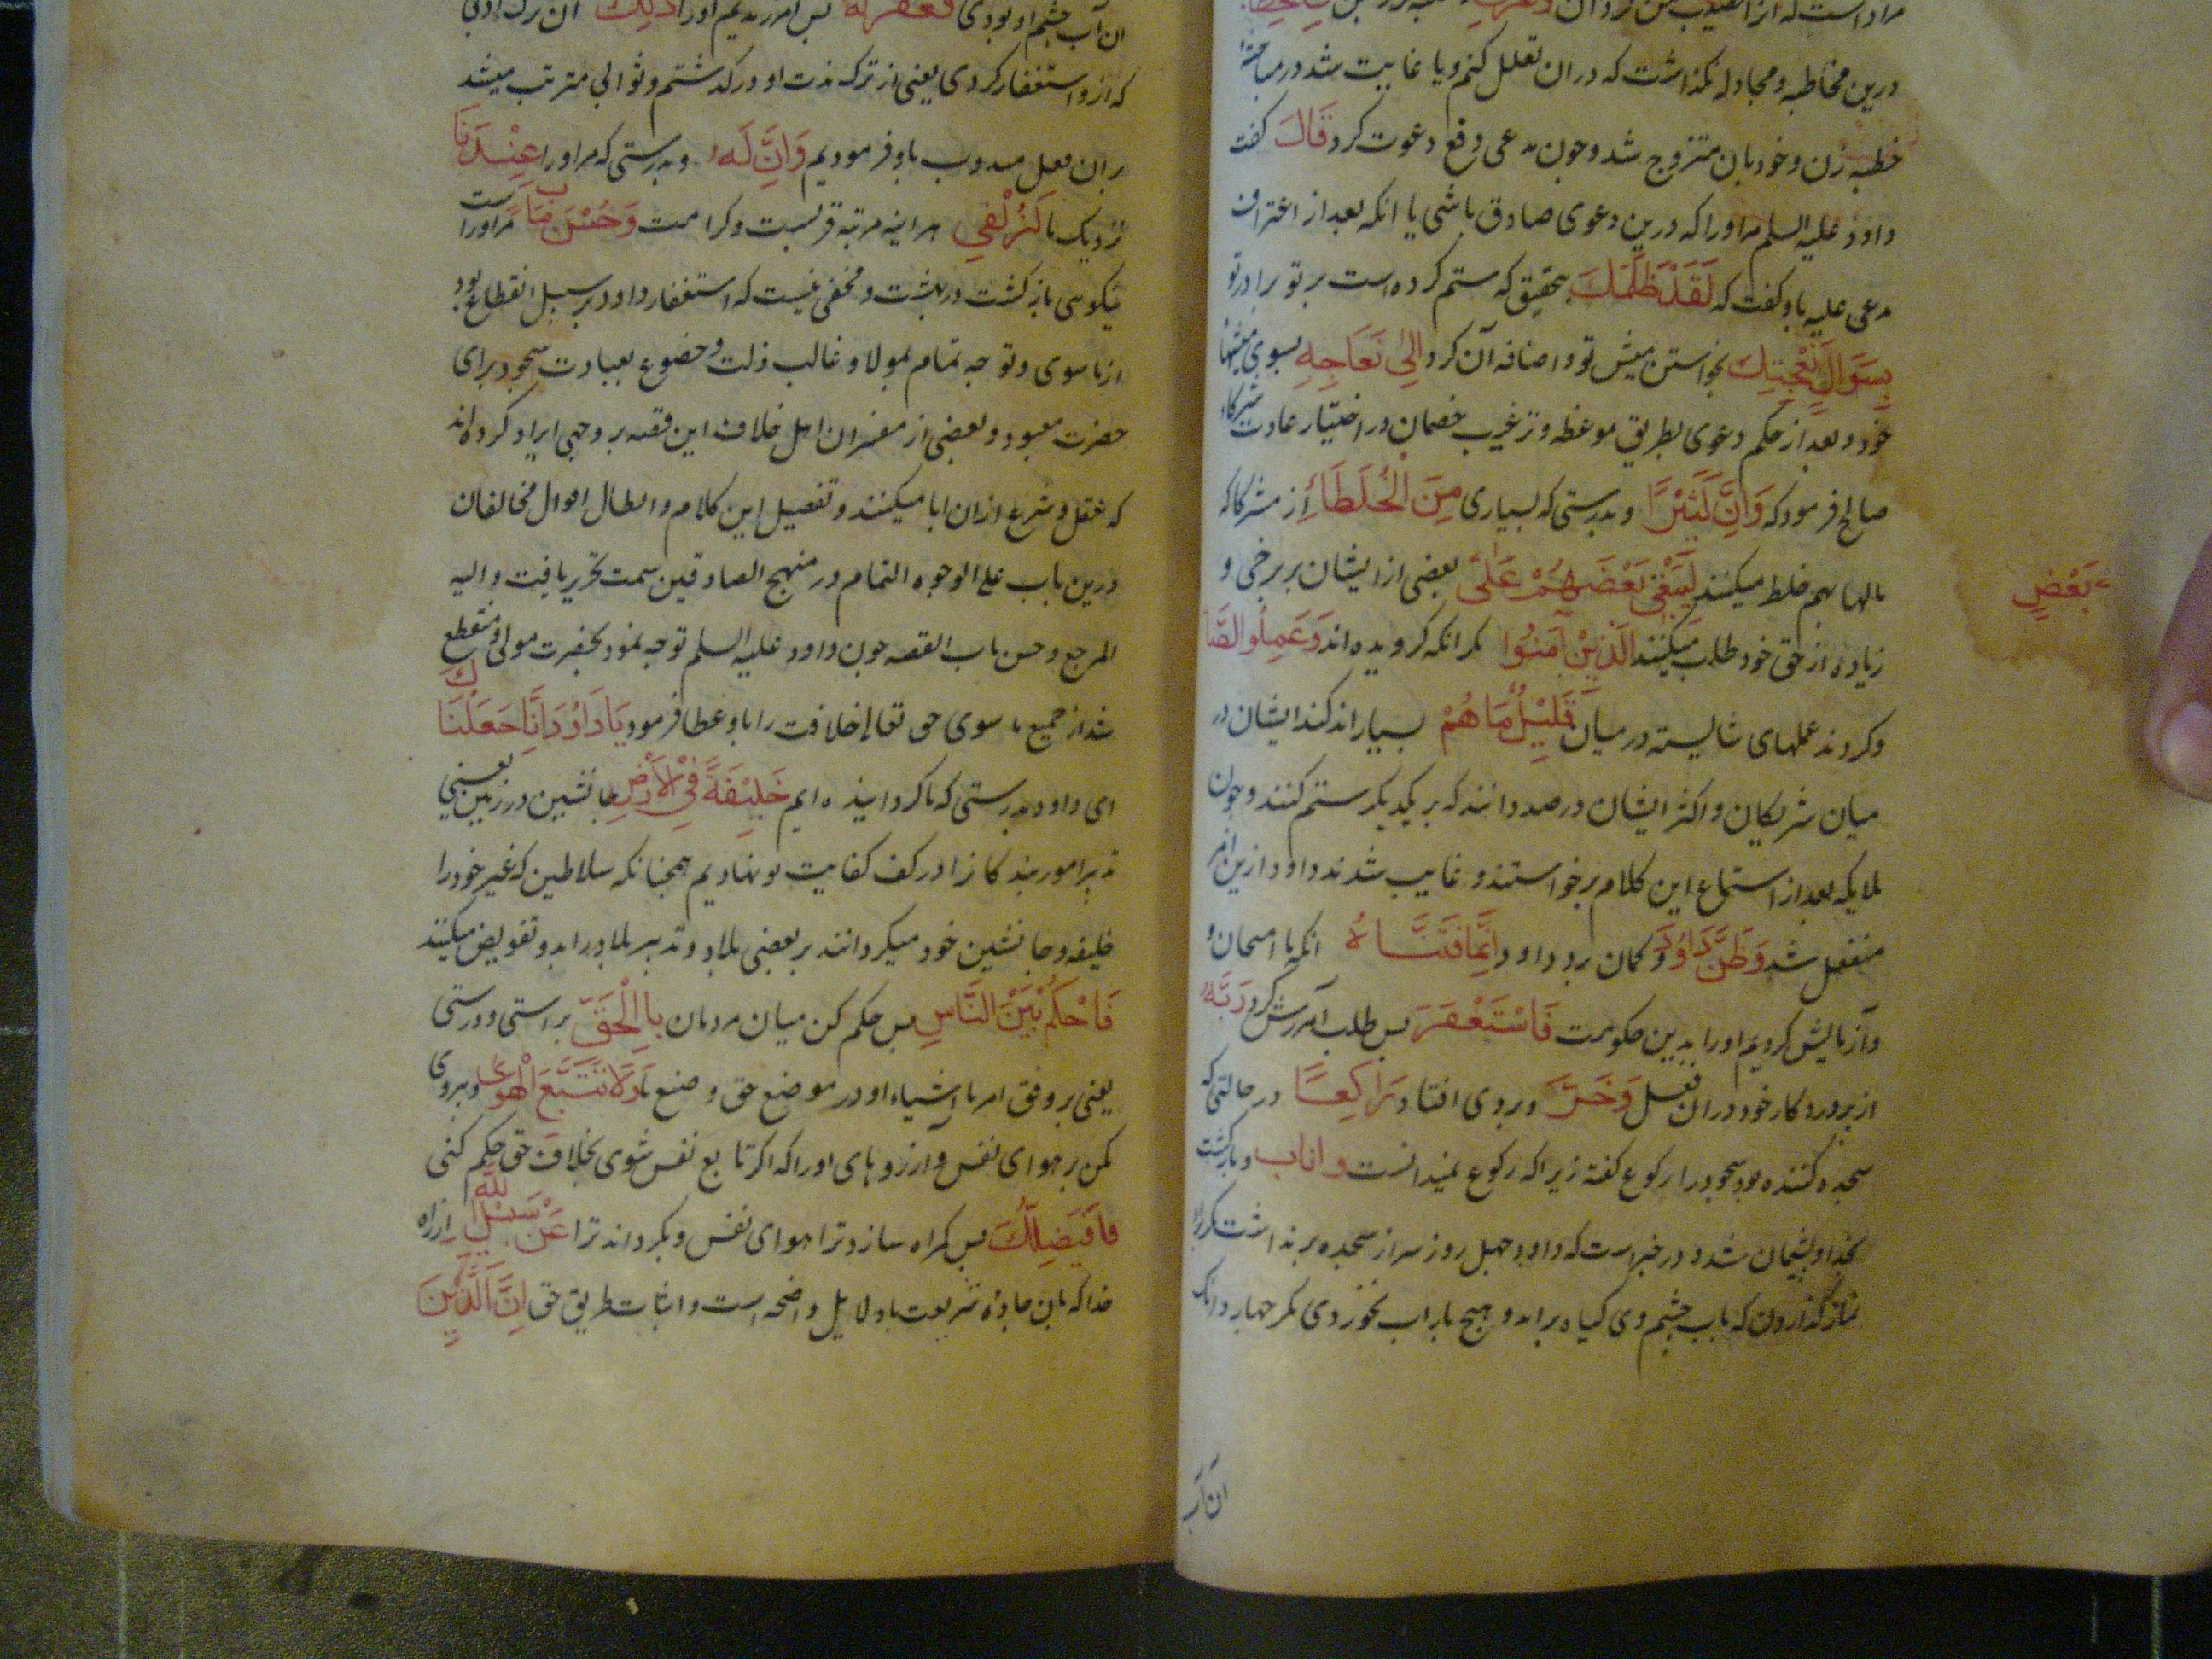 درین مخاطبه و مجادله نکذاشت که در ان تعلل کنم و یا غایبت شد در مباحثهٔ
خطبه زن و خود بان متزوج شد و چون مدعی وقع دعوت کرد قَالَ کفت
داود علیه السلم مر او را که درین دعوی صادق باشی یا انکه بعد از اعتراف
مدعی علیه باو کفت که لَقَدْ ظَلَمَكَ بتحقیق که ستم کرده است بر تو برادر تو
بِسَوَالِ نَعْجَتِكَ بخواستن میش تو و اضافه آن کرد اِلیٰ نَعَاجِهِ بسوی میشهای
خود و بعد از حکم دعوی بطریق موعظه و ترغیب خصمان در اختیار عادت شرکاء
صالح فرمود که وَاِنَّ كَثِیْرًا و بدرستی که بسیاری مِنَ الْخُلَطَاءِ از مشرکا که
مالها بهم خلط میکنند لَیَبْغِی بَعْضُهُمْ عَلیٰ بعضی از ایشان بر برخی و
بَعْضٍ
زیاده از حق خود طلب میکنند الَّذِیْنَ آمَنُوا مکر انکه کرویده اند وَعَمِلُوا الصَّا
و کردند عملهای شایسته در میان قَلِیْلٌ مَا هُمْ بسیار اندکند ایشان در
میان شریکان و اکثر ایشان در صدد انند که بر یکدیکر ستم کنند و چون
ملایکه بعد از استماع این کلام برخواستند و غایب شدند داود ازین امر
منفعل شد وَظَنَّ دَاوُدُ و کمان برد داود اَنَّمَا فَتَنَّاهُ انکه ما امتحان و
و آزمایش کردیم او را بدین حکومت فَاسْتَغْفَرَ پس طلب آمرزش کرد رَبَّهُ
از پروردکار خود در ان فعل وَخَرَّ و بروی افتاد رَاكِعًا در حالتی که
سجده کننده بود سجود را رکوع کفته زیرا که رکوع نمیدانست و اناب و بازکشت
بخدا و پشیمان شد و در خبر است که داود چهل روز سر از سجده برنداشت مکر برای
نماز کذاردن که باب چشم وی کیاه بر امد و هیچ بار اب نخوردی مکر چهار دانک
ان آب
ان آب چشم او بودی فَغَفَرْنَا لَهُ پس امرزیدیم او را ذٰلِكَ ان ترک اولی
که از و استغفار کردی یعنی از ترک ندبت او درکذشتم و ثوابی مترتب میشد
بر ان فعل مندوب باو فرمودیم وَاِنَّ لَهُ و بدرستی که مر او را عِنْدَنَا
نزدیک ما لَزُلْفٰی هر اینه مرتبه قربست و کرامت وَحُسْنَ مَآبٍ و مر او راست
نیکویی بازکشت در بهشت و مخفی نیست که استغفار داود بر سبیل انقطاع بود
از ما سوی و توجه تمام بمولا و غالب ذلت و خضوع بعبادت سجود برای
حضرت معبود و بعضی از مفسران اهل خلاف این قصه بر وجهی ایراد کرده اند
که عقل و شرع از ان ابا میکنند و تفصیل این کلام و ابطال اقوال مخالفان
درین باب علی الوجوه التمام در منهج الصادقین سمت تحریر یافت و الیه
المرجع و حسن ماب القصه چون داود علیه السلم توجه نمود بحضرت مولی و منقطع
شد از جمیع ما سوی حق تعالی خلافت را باو عطا فرمود یَا دَاوُدُ اِنَّا جَعَلْنَاكَ
ای داود بدرستی که ما کردانیده ایم خَلِیْفَةً فِی الْاَرْضِ جانشین در زمین یعنی
تدبیر امور بندکانرا در کف کفایت تو نهادیم همچنانکه سلاطین که غیر خود را
خلیفه و جانشین خود میکردانند بر بعضی بلاد و تدبیر بلاد را بدو تفویض میکنند
فَاحْكُمْ بَیْنَ النَّاسِ پس حکم کن میان مردمان بِالْحَقِّ براستی و درستی
یعنی بر وفق امر ما اشیاء او در موضع حق وضع نما وَلَا تَتَّبِعِ الْهَوٰی و پیروی
مکن بر هوای نفس و آرزوهای او را که اکر تابع نفس شوی بخلاف حق حکم کنی
فَاَفَیُضِلَّكَ پس کمراه سازد ترا هوای نفس و بکرداند ترا عَنْ سَبِیْلِ للّٰه از راه
خدا که بان جادهٔ شریعت با دلایل واضحه است و اثبات طریق حق اِنَّ الَّذِیْنَ